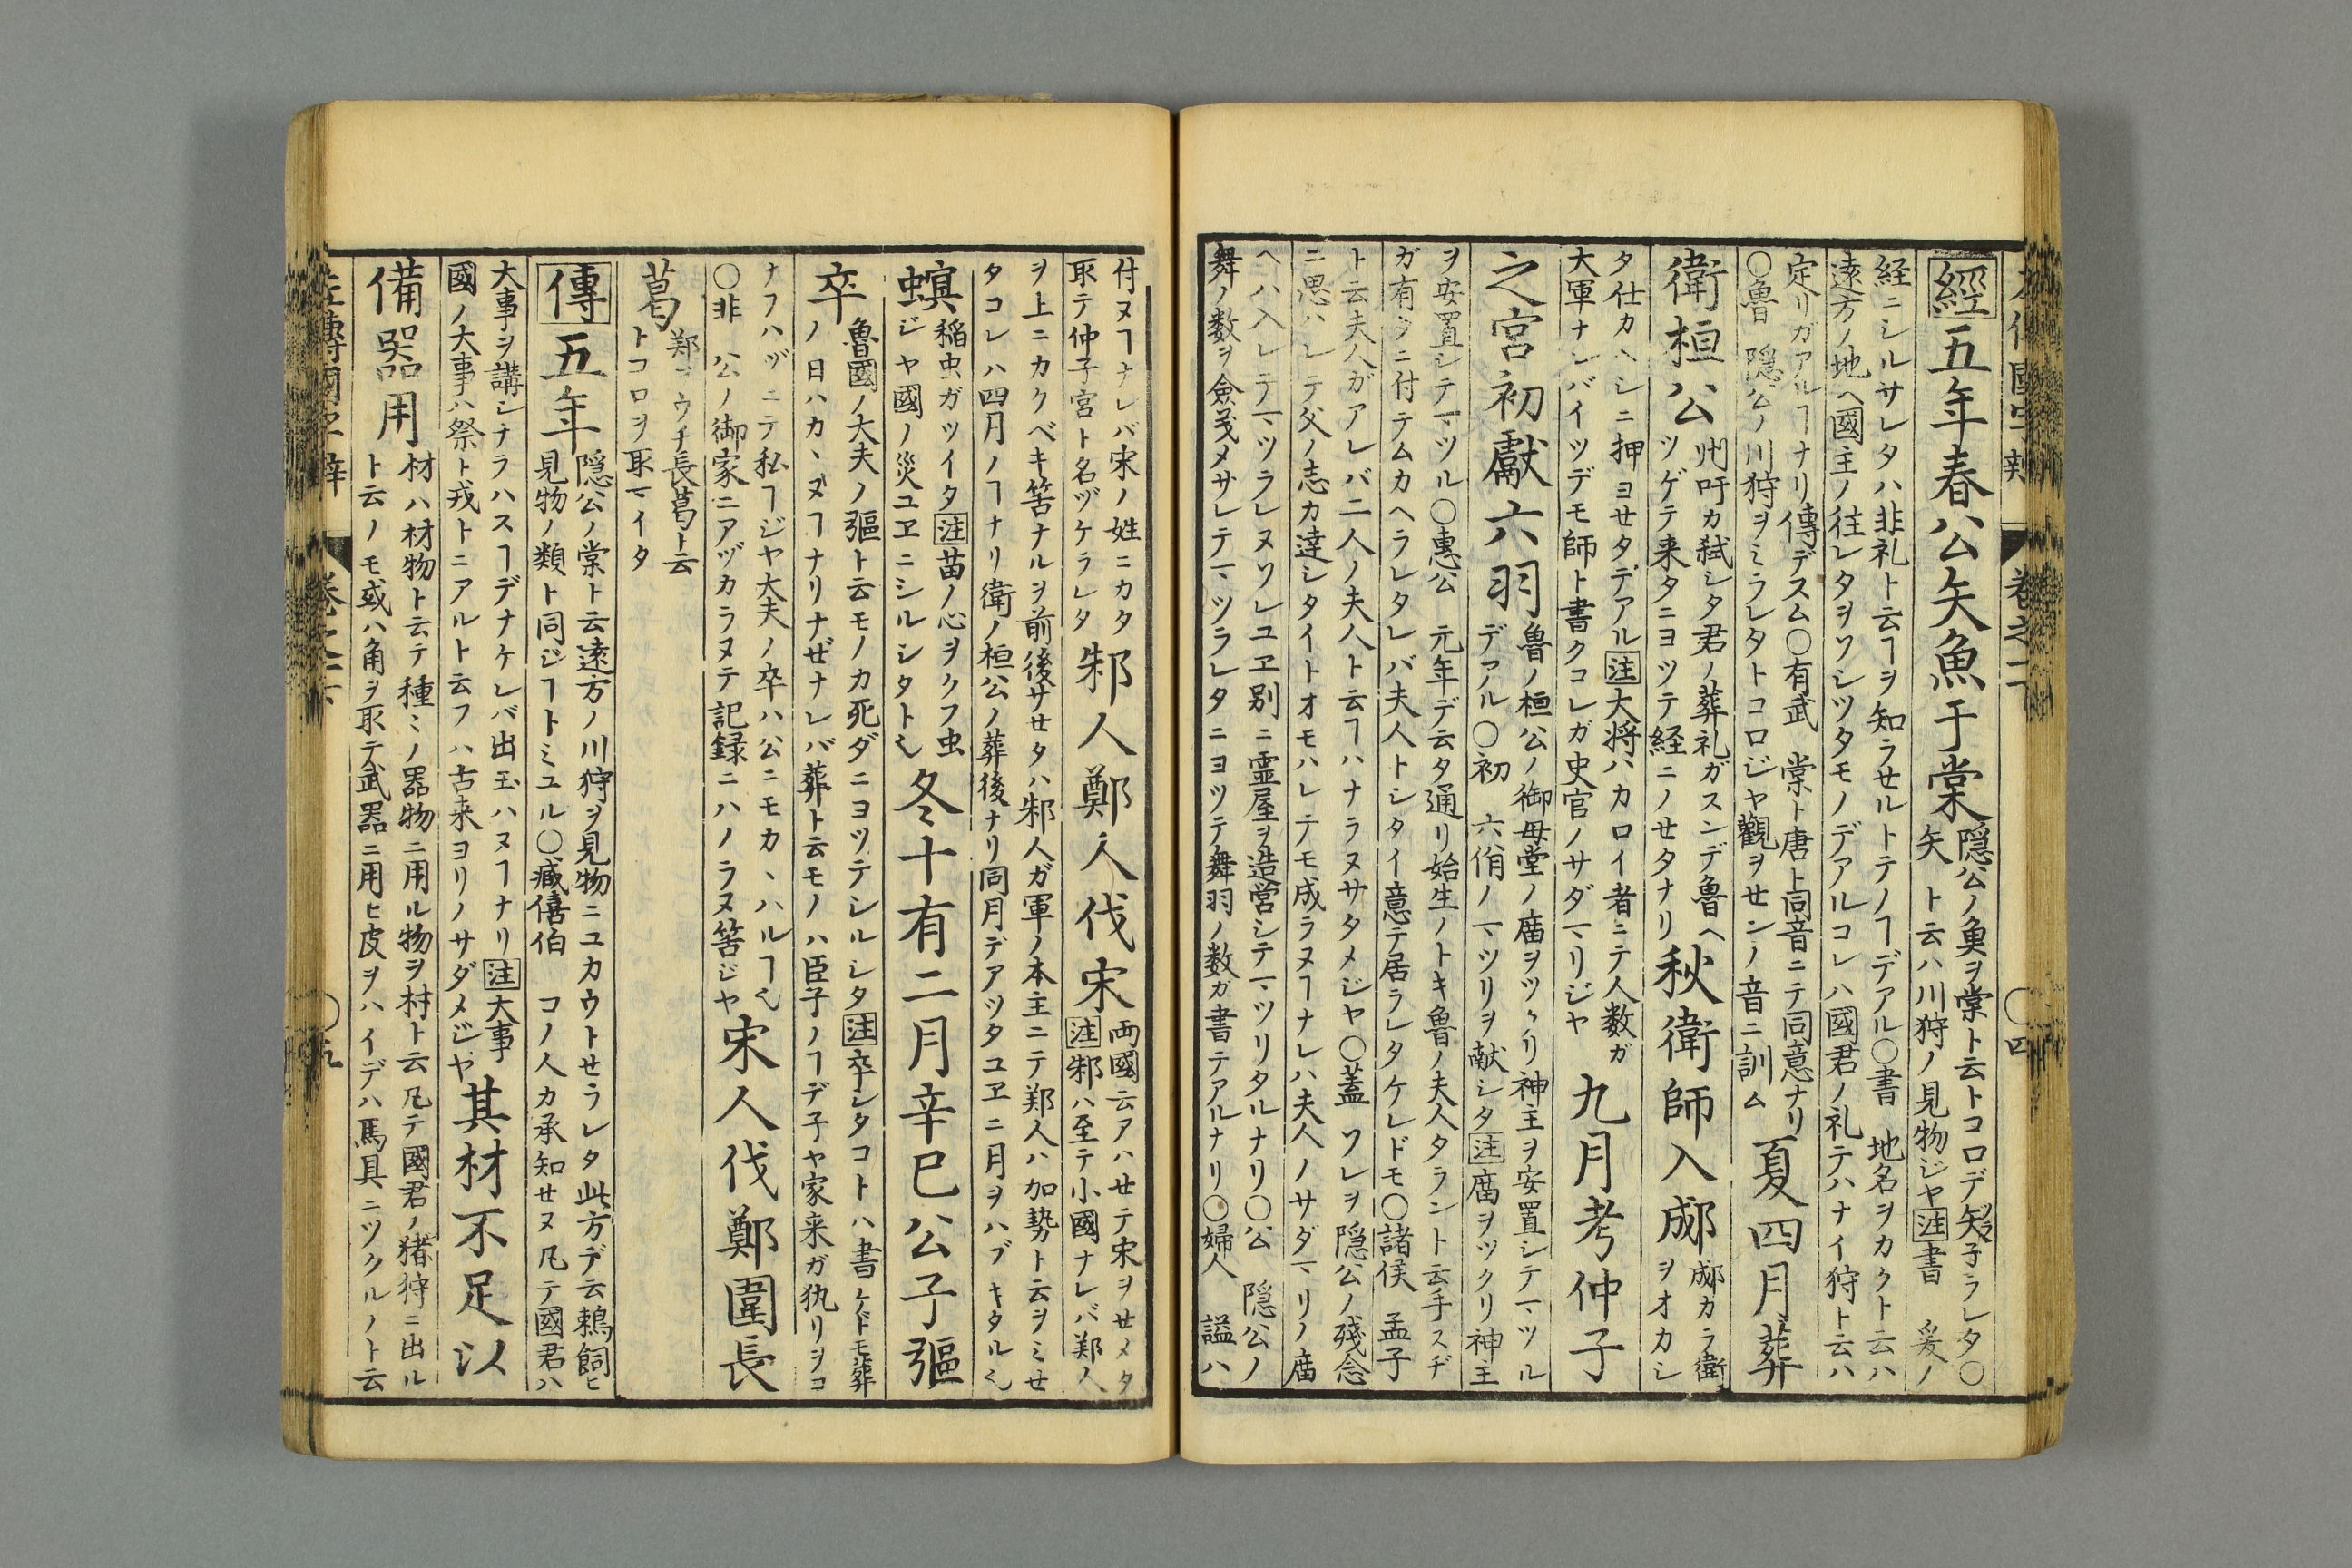 經五年春公矢魚于棠
隠公ノ魚ヲ棠ト云トコロデ矢子ラレタ〇
矢 ト云ハ川狩ノ見物ジヤ注書 爰ノ
経ニシルサレタハ非礼ト云ヿヲ知ラセルトテノヿデアル〇書 地名ヲカクト云ハ
遠方ノ地ヘ國主ノ往レタヲソシツタモノデアルコレハ國君ノ礼テハナイ狩ト云ハ
定リガアルヿナリ傳デスム〇有武 棠ト唐ト同音ニテ同意ナリ
〇魯 隠公ノ川狩ヲミラレタトコロジヤ觀ヲセンノ音ニ訓ム
夏四月葬
衛桓公
州吁カ弑シタ君ノ葬礼ガスンデ魯ヘ
ツゲテ来タニヨツテ経ニノせタナリ
秋衛師入郕
郕カラ衛
ヲオカシ
タ仕カヘシニ押ヨせタデアル注大将ハカロイ者ニテ人数ガ
大軍ナレバイツデモ師ト書クコレガ史官ノサダマリジヤ
九月考仲子
之宮初獻六羽
魯ノ桓公ノ御母堂ノ庿ヲツクリ神主ヲ安置シテマツル
デアル〇初 六佾ノマツリヲ献シタ注庿ヲツクリ神主
ヲ安置シテマツル〇惠公 元年デ云タ通リ始生ノトキ魯ノ夫人タラント云手スヂ
ガ有タニ付テムカヘラレタレバ夫人トシタイ意テ居ラレタケレドモ〇諸侯 孟子
ト云夫人ガアレバ二人ノ夫人ト云ヿハナラヌサタメジヤ〇蓋 ソレヲ隠公ノ殘念
ニ思ハレテ父ノ志カ達シタイトオモハレテモ成ラヌヿナレハ夫人ノサダマリノ庿
ヘハ入レテマツラレヌソレユヱ別ニ霊屋ヲ造営シテマツリタルナリ〇公 隠公ノ
舞ノ数ヲ僉義メサレテマツラレタニヨツテ舞羽ノ数ガ書テアルナリ〇婦人 謚ハ
付ヌヿナレバ宋ノ姓ニカタ
取テ仲子宮ト名ヅケラレタ
邾人鄭人伐宋
両國云アハせテ宋ヲせメタ
注邾ハ至テ小國ナレバ鄭人
ヲ上ニカクベキ筈ナルヲ前後サせタハ邾人ガ軍ノ本主ニテ鄭人ハ加勢ト云ヲミせ
タコレハ四月ノヿナリ衛ノ桓公ノ葬後ナリ同月デアツタユヱニ月ヲハブキタル也
螟
稲虫ガツイタ注苗ノ心ヲクフ虫
ジヤ國ノ災ユヱニシルシタト也
冬十有二月辛巳公子彄
卒
魯國ノ大夫ノ彄ト云モノカ死ダニヨツテシルシタ注卒シタコトハ書ケドモ葬
ノ日ハカヽヌヿナリナぜナレバ葬ト云モノハ臣子ノヿデ子ヤ家来ガ执リヲコ
ナフハヅニテ私ヿジヤ大夫ノ卒ハ公ニモカヽハルヿ也
〇非 公ノ御家ニアヅカラヌテ記録ニハノラヌ筈ジヤ
宋人伐鄭圍長
葛
鄭ノウチ長葛ト云
トコロヲ取マイタ
傳五年
隠公ノ棠ト云遠方ノ川狩ヲ見物ニユカウトせラレタ此方デ云鵜飼ヒ
見物ノ類ト同ジヿトミユル〇臧僖伯 コノ人カ承知せヌ凡テ國君ハ
大事ヲ講シナラハスヿデナケレバ出玉ハヌヿナリ注大事
國ノ大事ハ祭ト戎トニアルト云フハ古来ヨリノサダメジヤ
其材不足以
備器用
材ハ材物ト云テ種々ノ器物ニ用ル物ヲ材ト云凡テ國君ノ猪狩ニ出ル
ト云ノモ或ハ角ヲ取テ武器ニ用ヒ皮ヲハイデハ馬具ニツクルノト云